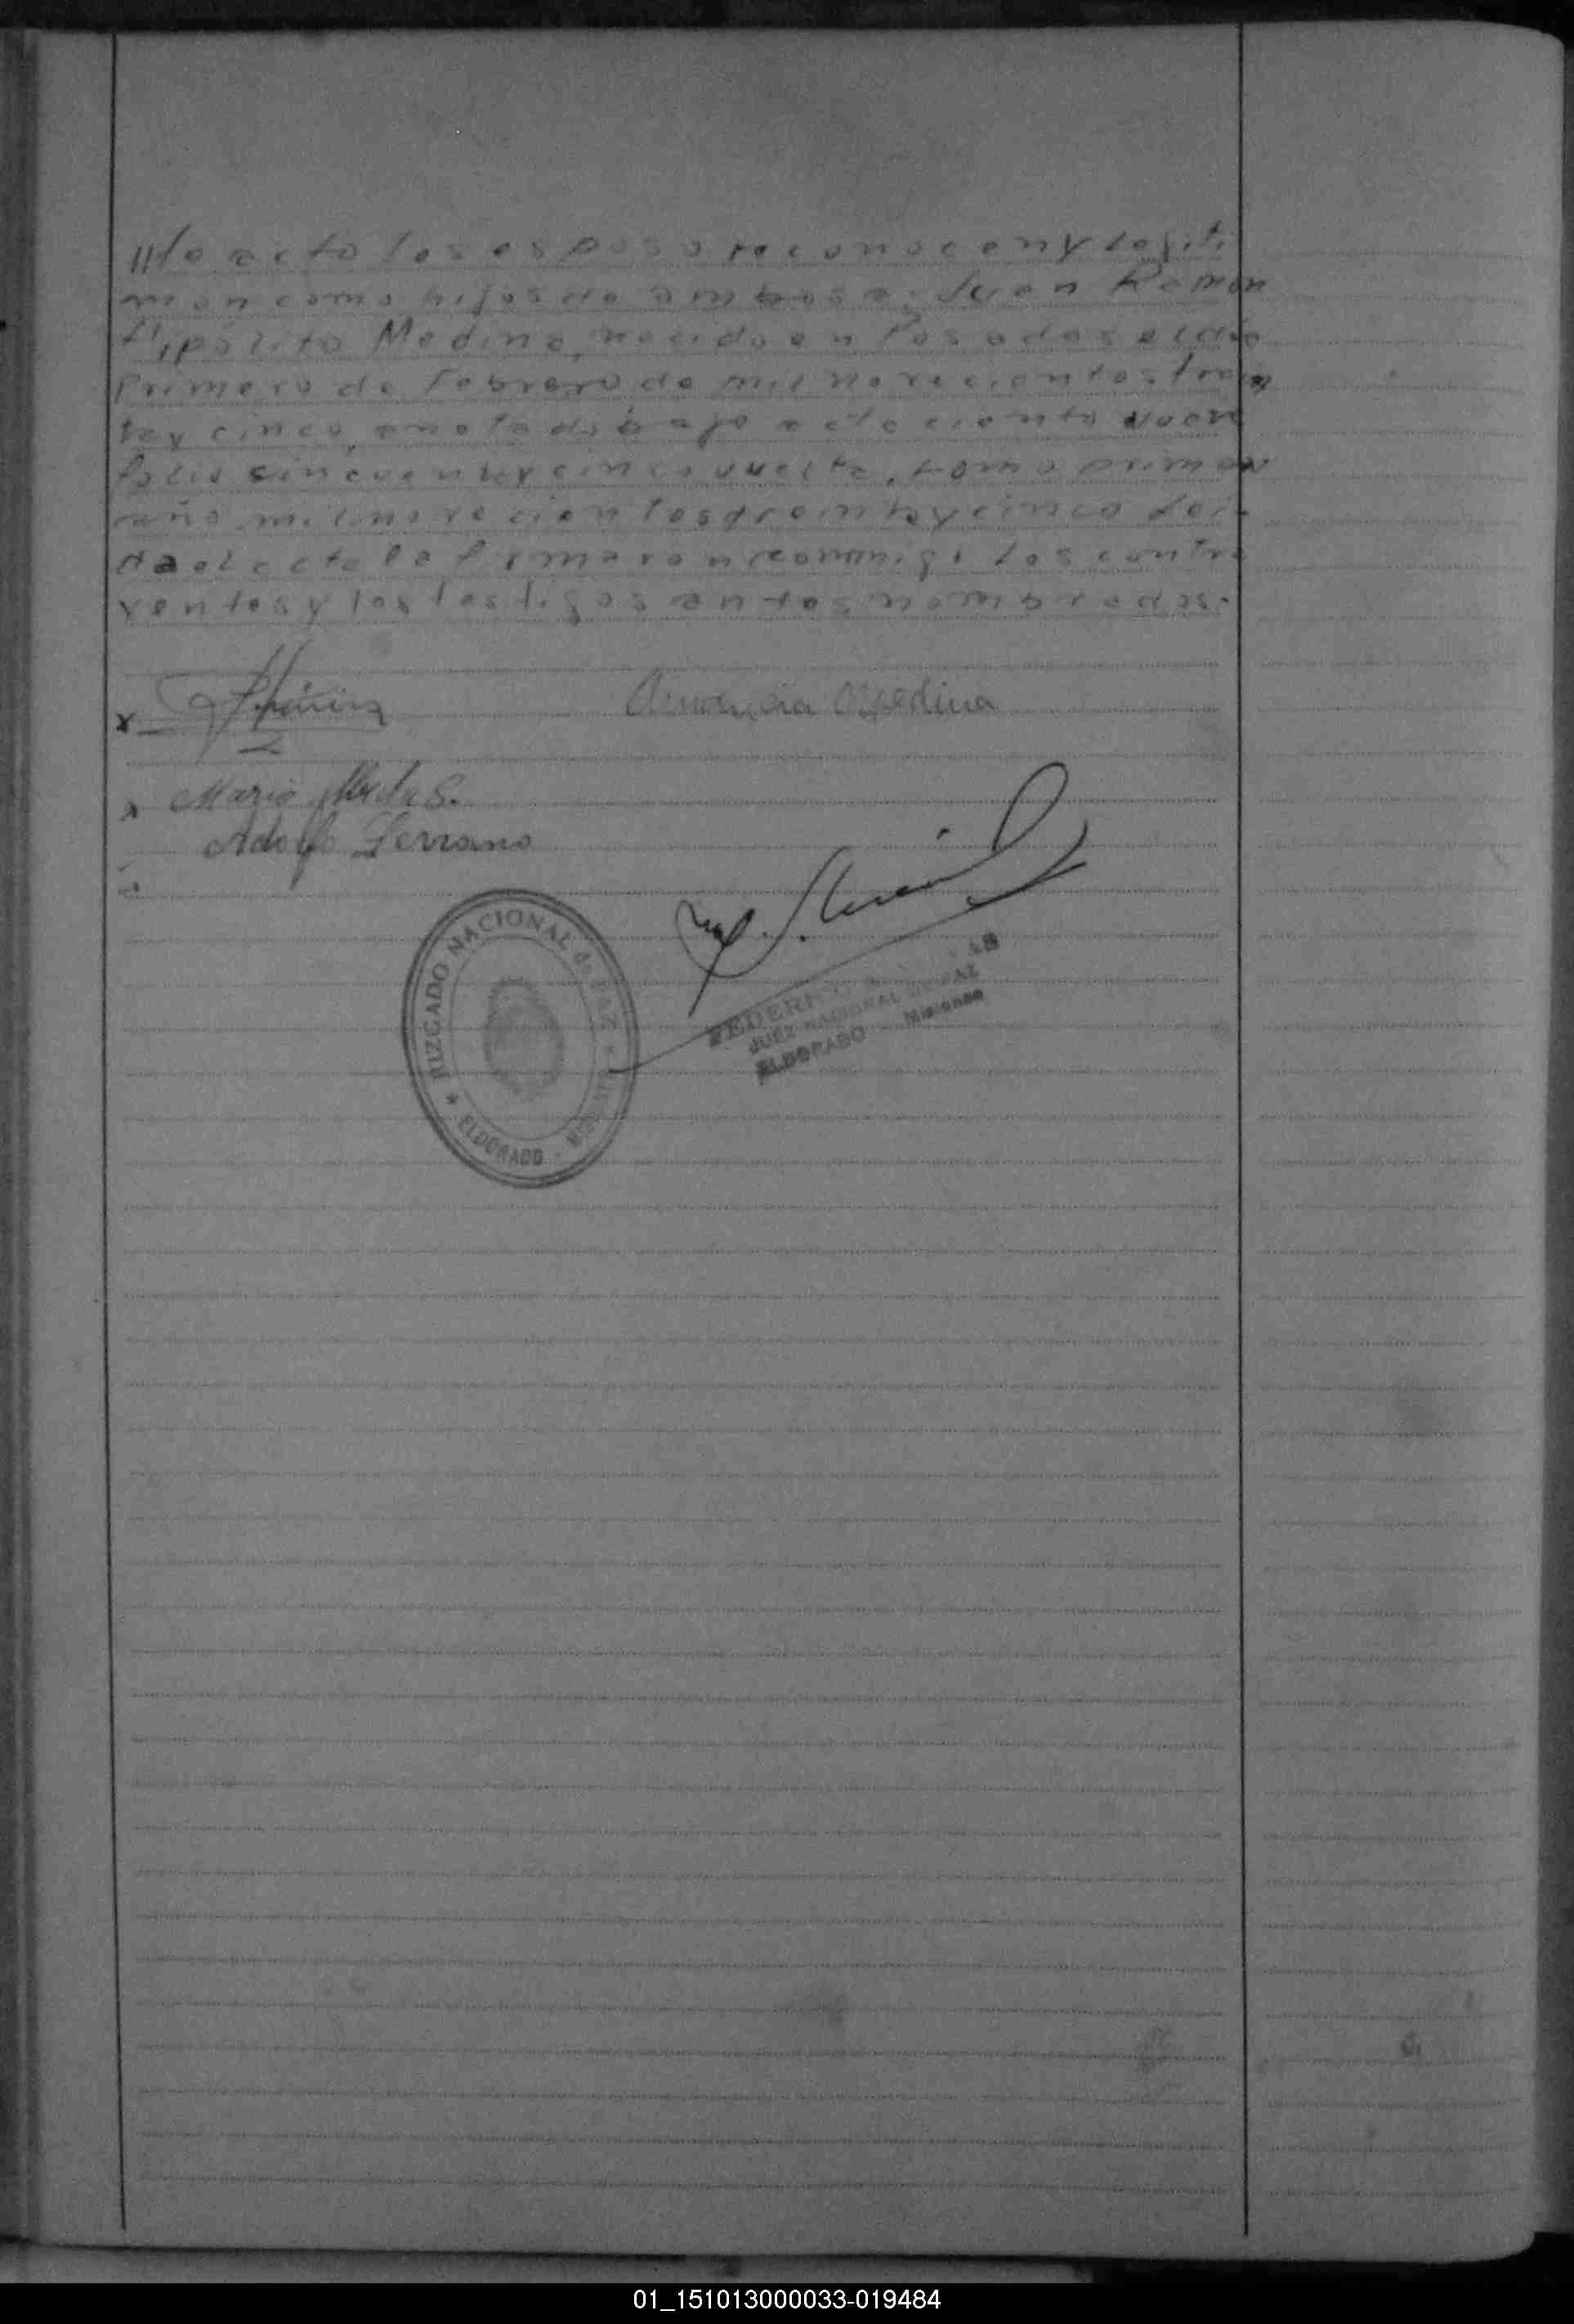 //te acto los esposo reconocen y legiti
man como hijos de ambos a: Juan Ramon
Hipólito Medina, nacido en Posadas el dia
Primero de Febrero de mil novecientos trein
ta y cinco, anotado bajo acta ciento nueve
folio cincuenta y cinco vuelta, tomo primero
año mil novecientos treinta y cinco Lei-
da el acta la firmaron conmigo los contra
yentes y los testigos antes nombrados.-
x
Medina
x Mario
Adolfo Serrano
JUZGADO NACIONAL de PAZ
ELDORADO - MISIONES
FEDERICO
JUEZ NACIONAL DE PAZ
ELDORADO Misiones
01_151013000033-019484